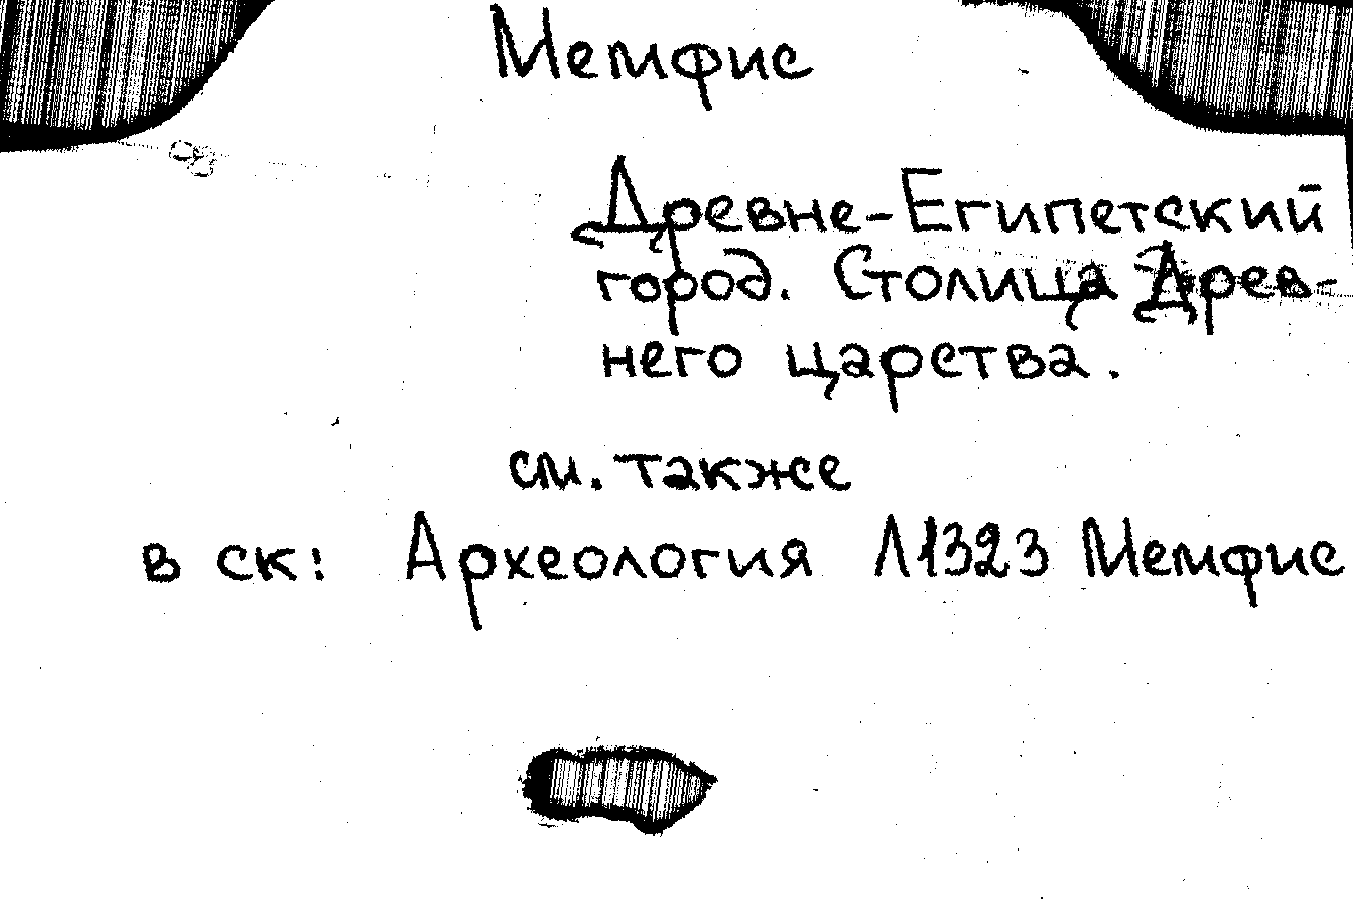 Мемфис
Древне-Египетский
город. Столица Древ-
него царства.
см. также
в ск: Археология Л1323 Мемфис